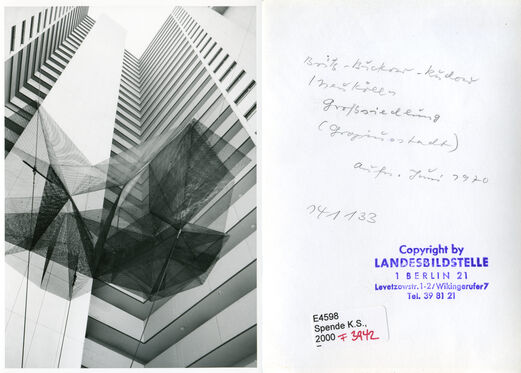 Britz-Buckow-Rudow
/Neukölln
Großsiedlung
(Gropiusstadt)
Aufn. Juni 1970
141133
Copyright by
LANDESBILDSTELLE
1 BERLIN 21
Levetzowstr. 1-2/Wikingerufer 7
Tel. 39 81 21
E4598
Spende K.S.,
2000 F 3942